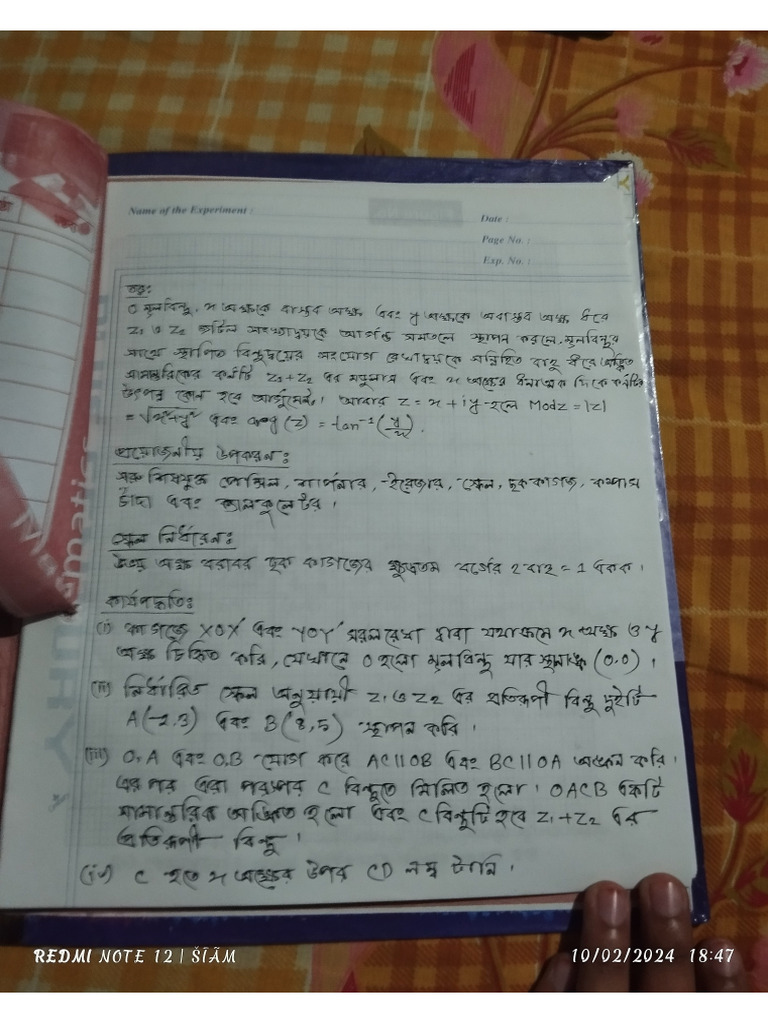 Name of the Experiment :
Date :
Page No. :
Exp. No. :
তত্ত্ব:
O মূলবিন্দু, x অক্ষকে বাস্তব অক্ষ এবং y অক্ষকে অবাস্তব অক্ষ ধরে
z₁ ও z₂ জটিল সংখ্যাদ্বয়কে আর্গন্ড সমতলে স্থাপন করলে, মূলবিন্দুর
সাথে স্থাপিত বিন্দুদ্বয়ের সংযোগ রেখাদ্বয়কে সন্নিহিত বাহু ধরে অঙ্কিত
সামান্তরিকের কর্ণটি z₁+z₂ এর মডুলাস এবং x অক্ষের ধনাত্মক দিকে কর্ণটির
উৎপন্ন কোন হবে আর্গুমেন্ট। আবার z = x + iy হলে Modz = |z|
= √x²+y² এবং arg(z) = tan⁻¹(y/x).
প্রয়োজনীয় উপকরণ:
সরু শিষযুক্ত পেন্সিল, শার্পনার, ইরেজার, স্কেল, ছককাগজ, কম্পাস
চাঁদা এবং ক্যালকুলেটর।
স্কেল নির্ধারন:
উভয় অক্ষ বরাবর ছক কাগজের ক্ষুদ্রতম বর্গের 2 বাহু = 1 একক।
কার্যপদ্ধতি:
(i) কাগজে XOX′ এবং YOY′ সরলরেখা দ্বারা যথাক্রমে x অক্ষ ও y
অক্ষ চিহ্নিত করি, যেখানে O হলো মূলবিন্দু যার স্থানাঙ্ক (0,0)।
(ii) নির্ধারিত স্কেল অনুযায়ী z₁ ও z₂ এর প্রতিরূপী বিন্দু দুইটি
A(-2,3) এবং B(8,5) স্থাপন করি।
(iii) O,A এবং O,B যোগ করে AC||OB এবং BC||OA অঙ্কন করি।
এরপর এরা পরস্পর C বিন্দুতে মিলিত হলো। OACB একটি
সামান্তরিক অঙ্কিত হলো এবং C বিন্দুটি হবে z₁+z₂ এর
প্রতিরূপী বিন্দু।
(iv) C হতে x অক্ষের উপর CD লম্ব টানি।
REDMI NOTE 12 | ŠĪĀM
10/02/2024 18:47